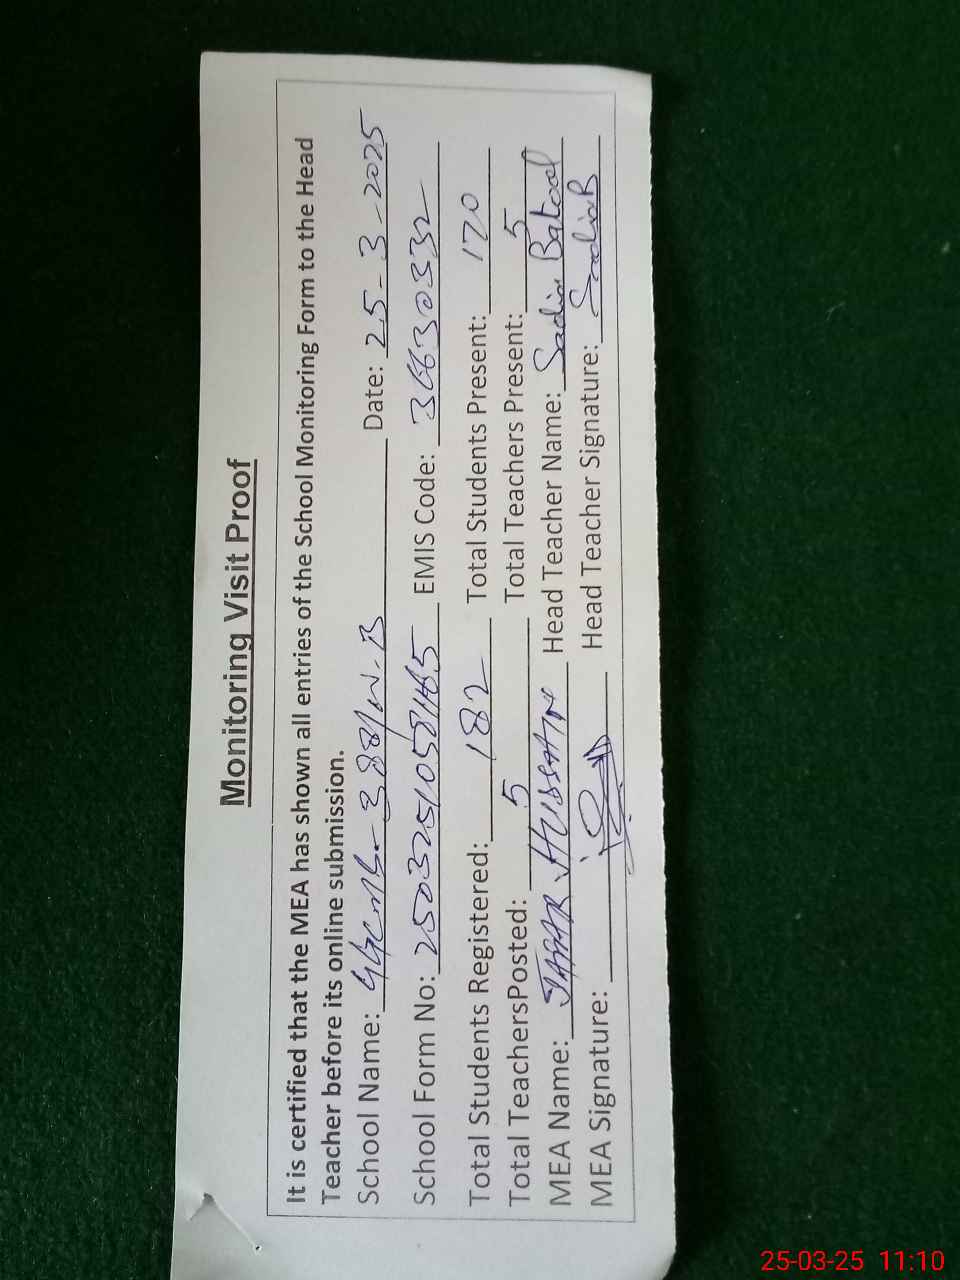 Monitoring Visit Proof
It is certified that the MEA has shown all entries of the School Monitoring Form to the Head
Teacher before its online submission.
School Name: GGCMS-388/W.B Date: 25-3-2025
School Form No: 25032510581465 EMIS Code: 36630332
Total Students Registered: 182 Total Students Present: 170
Total TeachersPosted: 5 Total Teachers Present: 5
MEA Name: JAFAR HUSSAIN Head Teacher Name: Sadia Batool
MEA Signature: Head Teacher Signature: SadiaB
25-03-25 11:10